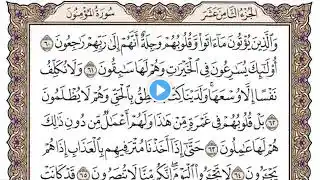 الجُزْءُ الثَّامِنَ عَشَرَ سُورَةُ المُؤْمِنُونَ
وَٱلَّذِينَ يُؤْتُونَ مَآ ءَاتَوا۟ وَّقُلُوبُهُمْ وَجِلَةٌ أَنَّهُمْ إِلَىٰ رَبِّهِمْ رَٰجِعُونَ ٦٠
أُو۟لَٰٓئِكَ يُسَٰرِعُونَ فِى ٱلْخَيْرَٰتِ وَهُمْ لَهَا سَٰبِقُونَ ٦١ وَلَا نُكَلِّفُ
نَفْسًا إِلَّا وُسْعَهَا وَلَدَيْنَا كِتَٰبٌ يَنطِقُ بِٱلْحَقِّ وَهُمْ لَا يُظْلَمُونَ
٦٢ بَلْ قُلُوبُهُمْ فِى غَمْرَةٍ مِّنْ هَٰذَا وَلَهُمْ أَعْمَٰلٌ مِّن دُونِ ذَٰلِكَ
هُمْ لَهَا عَٰمِلُونَ ٦٣ حَتَّىٰٓ إِذَآ أَخَذْنَا مُتْرَفِيهِم بِٱلْعَذَابِ إِذَا هُمْ
يَجْـَٔرُونَ ٦٤ لَا تَجْـَٔرُوا۟ ٱلْيَوْمَ إِنَّكُم مِّنَّا لَا تُنصَرُونَ ٦٥ قَدْ كَانَتْ